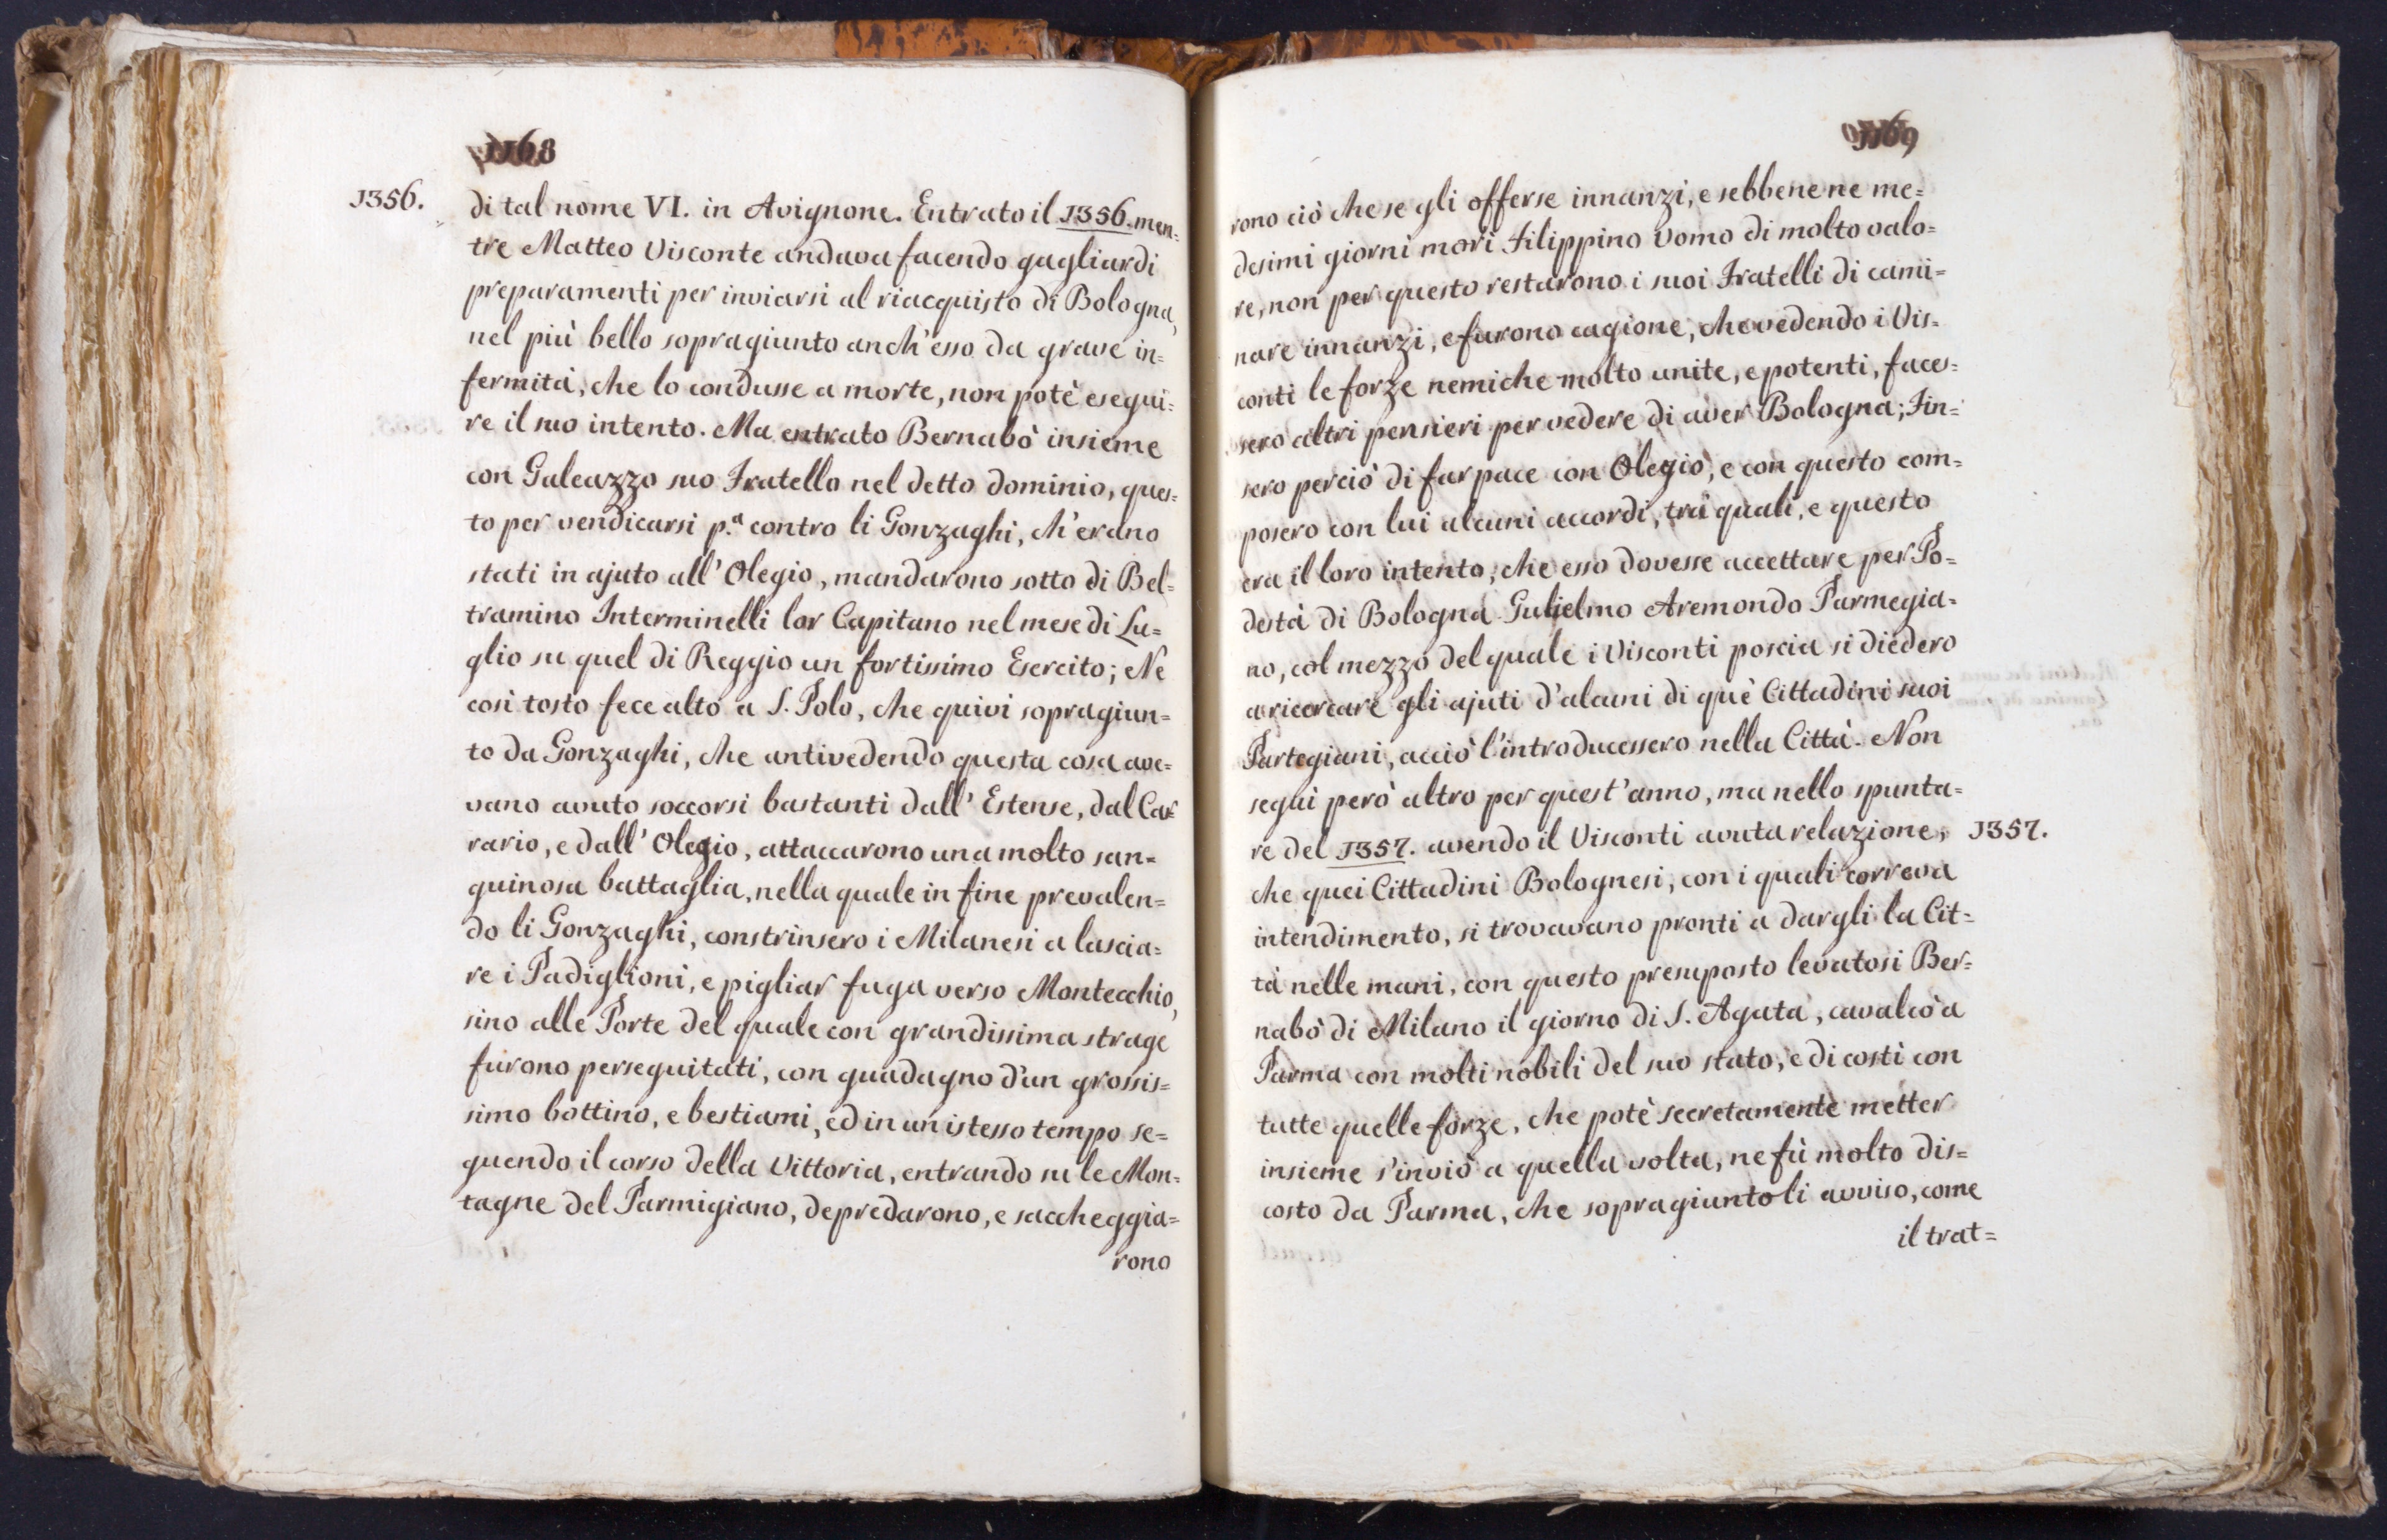 1168
1356.
di tal nome VI. in Avignone. Entrato il 1356. men=
tre Matteo Visconte andava facendo gagliardi
preparamenti per inviarsi al riacquisto di Bologna,
nel più bello sopragiunto anch'esso da grave in=
fermità, che lo condusse a morte, non potè esegui=
re il suo intento. Ma entrato Bernabò insieme
con Galeazzo suo Fratello nel detto dominio, ques=
to per vendicarsi p.a contro li Gonzaghi, ch'erano
stati in ajuto all' Olegio, mandarono sotto di Bel=
tramino Interminelli lor Capitano nel mese di Lu=
glio su quel di Reggio un fortissimo Esercito; Ne
così tosto fece alto a S. Polo, che quivi sopragiun=
to da Gonzaghi, che antivedendo questa cosa ave=
vano avuto soccorsi bastanti dall' Estense, dal Car=
rario, e dall' Olegio, attaccarono una molto san=
guinosa battaglia, nella quale in fine prevalen=
do li Gonzaghi, constrinsero i Milanesi a lascia=
re i Padiglioni, e pigliar fuga verso Montecchio,
sino alle Porte del quale con grandissima strage
furono perseguitati, con guadagno d'un grossis=
simo bottino, e bestiami, ed in un istesso tempo se=
guendo il corso della Vittoria, entrando su le Mon=
tagne del Parmigiano, depredarono, e saccheggia=
rono
1169
rono ciò che se gli offerse innanzi, e sebbene ne me=
desimi giorni morì Filippino Uomo di molto valo=
re, non per questo restarono i suoi Fratelli di cami=
nare innanzi, e furono cagione, che vedendo i Vis=
conti le forze nemiche molto unite, e potenti, faces=
sero altri pensieri per vedere di aver Bologna; Fin=
sero perciò di far pace con Olegio, e con questo com=
posero con lui alcuni accordi, trà quali, e questo
era il loro intento, che esso dovesse accettare per Po=
destà di Bologna Gulielmo Aremondo Parmegia=
no, col mezzo del quale i Visconti poscia si diedero
a ricercare gli ajuti d'alcuni di què Cittadini suoi
Partegiani, acciò l'introducessero nella Città. Non
seguì però altro per quest'anno, ma nello spunta=
re del 1357. avendo il Visconti avuta relazione, 1357.
che quei Cittadini Bolognesi, con i quali correva
intendimento, si trovavano pronti a dargli la Cit=
tà nelle mani, con questo presuposto levatosi Ber=
nabò di Milano il giorno di S. Agata, cavalcò a
Parma con molti nobili del suo stato, e di costì con
tutte quelle forze, che potè secretamente metter
insieme s'inviò a quella volta, ne fù molto dis=
costo da Parma, che sopragiuntoli avviso, come
il trat=